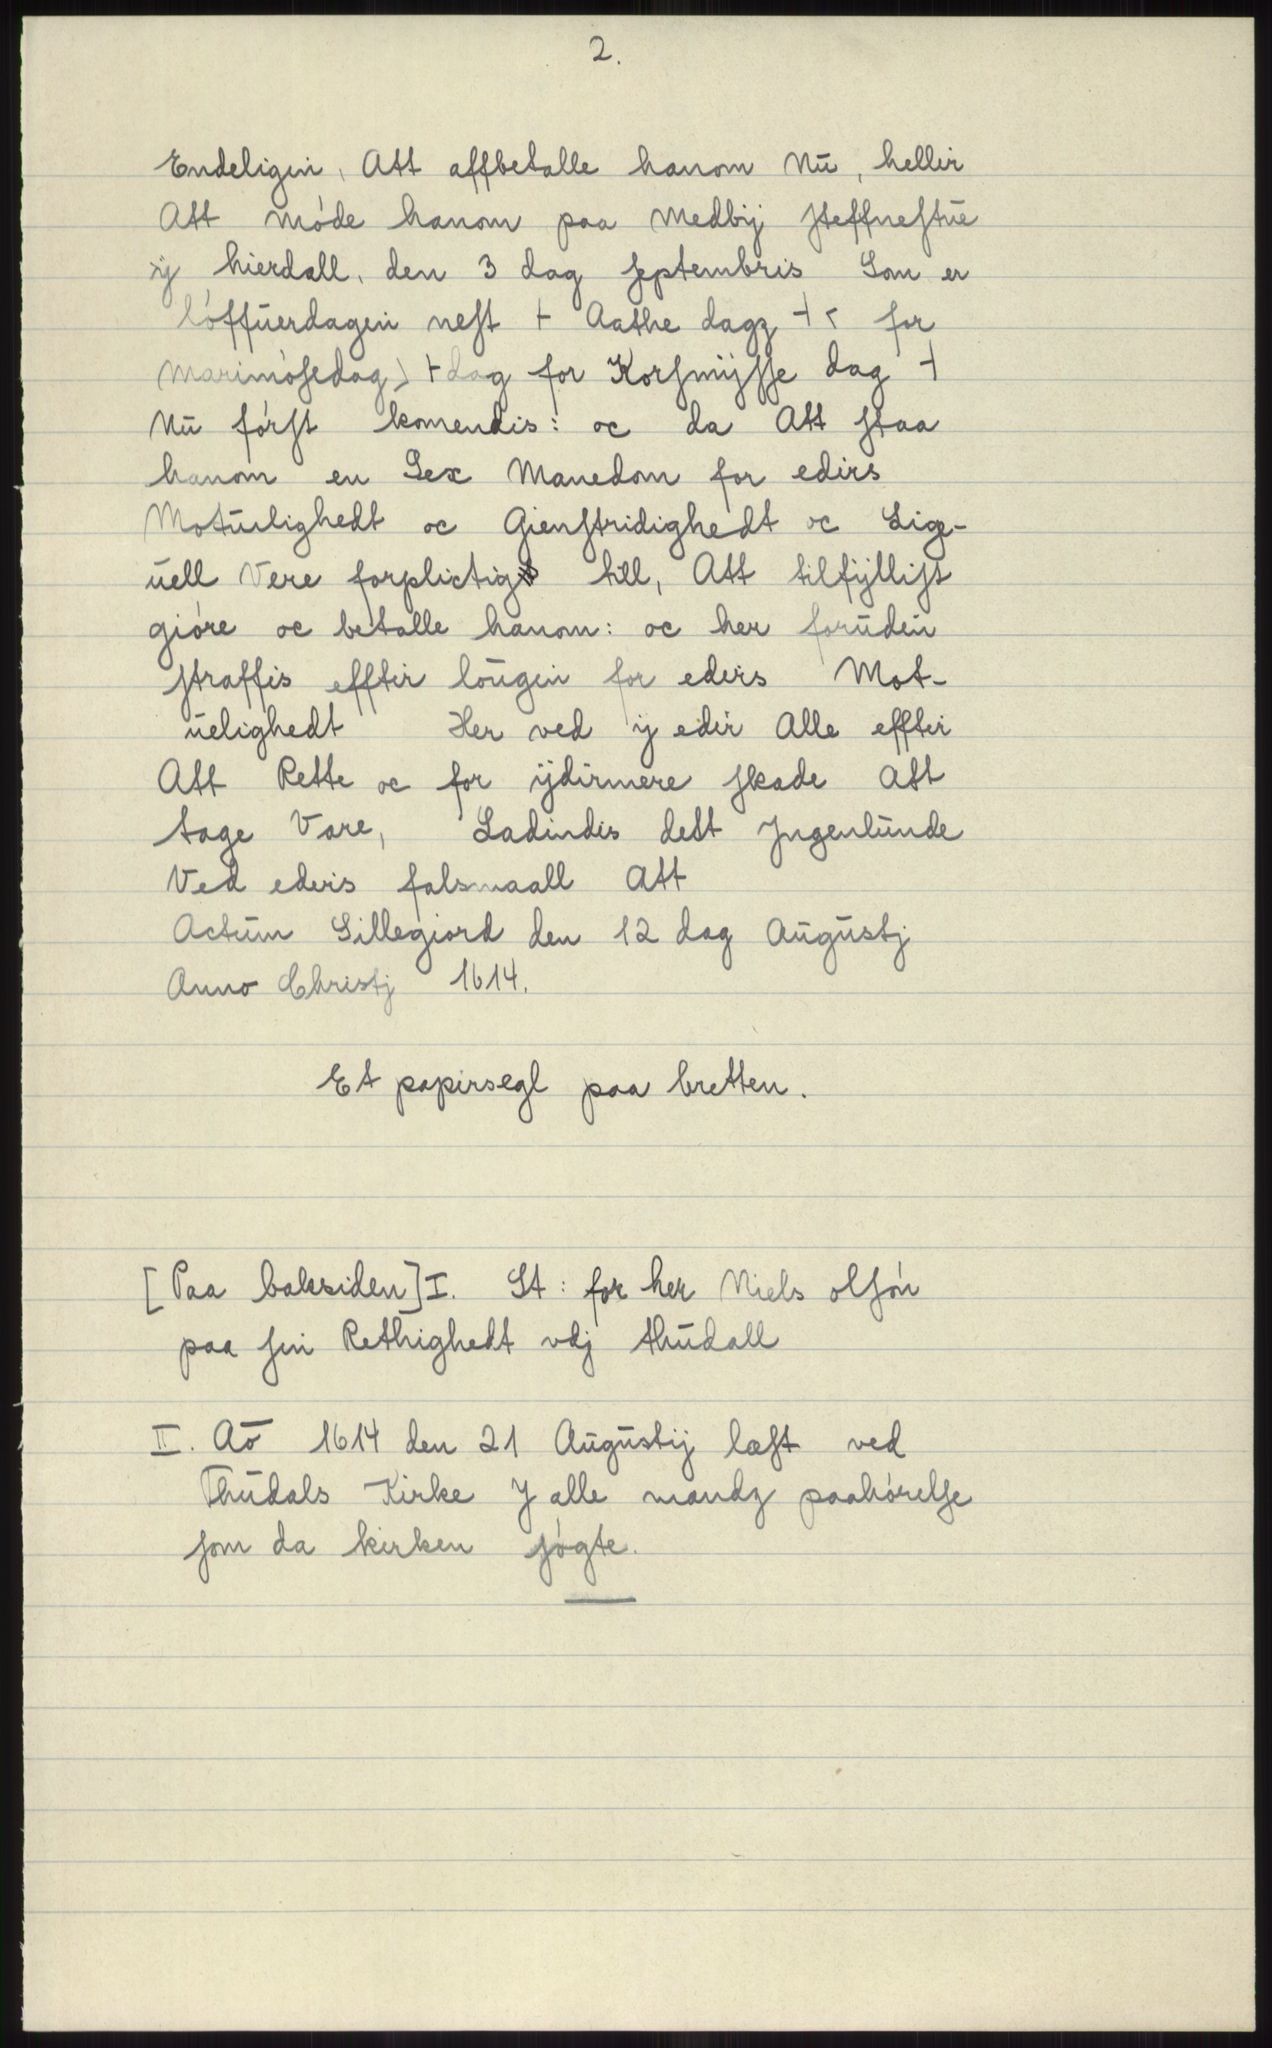 2.
Endeligin, Att affbetalle hanom Nū, hellir
Att móde hanom paa Medbÿ ſteffneſtūe
ÿ hierdall, den 3 dag ſeptembris Som er
lóffūerdagin neſt ⊢ Aathe dagz ⊣ < for
marimóſedag > ⊢ dag for Korſmÿſſe dag ⊣
Nū fórſt komendis: oc da Att ſtaa
hanom en Sex Manedom for edirs
Motūilighedt oc Gienſtridighedt oc Lige-
ūell Vere forplictig till, Att tilfÿlliſt
gióre oc betalle hanom: oc her forūdēn
ſtraffis efftir loūgin for edirs Mot-
ūelighedt Her ved ÿ edir Alle efftir
Att Rette oc for ÿdirmere ſkade Att
tage Vare, Ladindis dett Jngenlūnde
Ved edirs falsmaall Att
Actūm Sillegiord den 12 dag Aūgūstj
Anno Christj 1614.
Et papirsegl paa bretten.
[Paa baksiden] I. St: for her Niels olſón
paa ſin Rethighedt vdj thūdall
II. Aō 1614 den 21 Aūgūstij læſt ved
Thūdals Kirke J alle mandz paahórelſe
ſom da kirken ſógte.